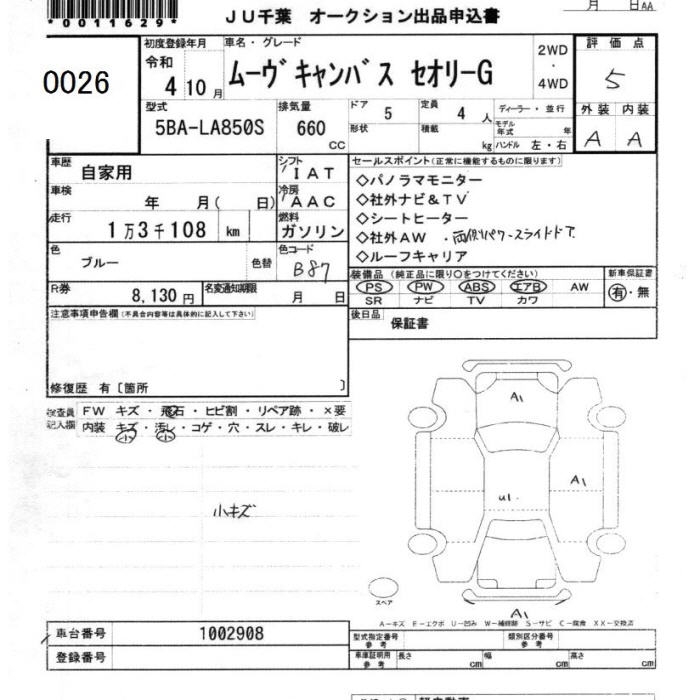 *0011629*
JU千葉 オークション出品申込書
月 日AA
0026
初度登録年月
令和
4 10 月
車名・グレード
ムーヴキャンバス セオリーG
2WD
・
4WD
評価点
5
型式
5BA-LA850S
排気量
660
CC
ドア
5
形状
定員
4 人
積載
kg
ディーラー・並行
モデル年式 年
ハンドル 左・右
外装 内装
A A
車歴
自家用
シフト
IAT
車検
年 月( 日)
冷房
AAC
走行
1万3千108 km
燃料
ガソリン
色
ブルー
色替
色コード
B87
R券
8,130 円
名変通知期限
月 日
セールスポイント(正常に機能するものに限ります)
◇パノラマモニター
◇社外ナビ&TV
◇シートヒーター
◇社外AW ・両側パワースライドドア
◇ルーフキャリア
装備品 (純正品に限り○をつけてください)
PS PW ABS エアB AW
SR ナビ TV カワ
新車保証書
有・無
後日品
保証書
注意事項申告欄(不具合内容等は具体的に記入して下さい)
修復歴 有〔箇所 〕
検査員
記入欄
FW キズ・飛石・ヒビ割・リペア跡・×要
内装 キズ・汚レ・コゲ・穴・スレ・キレ・破レ
小 小
小キズ
A1
A1
U1.
A1
スペア
A－キズ E－エクボ U－凹み W－補修跡 S－サビ C－腐食 XX－交換済
車台番号
1002908
登録番号
型式指定番号
参考
類別区分番号
参考
車庫証明用
参考
長さ cm
幅 cm
高さ cm